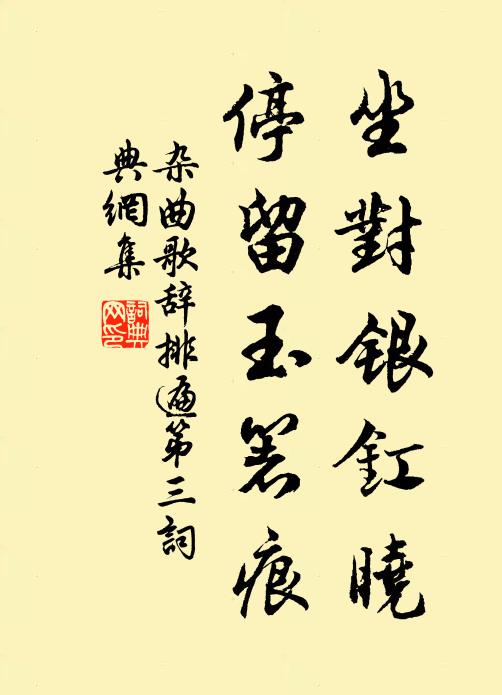 坐對銀釭曉
停留玉箸痕
杂曲歌辞排遍第三詞
典網集
詞典網印